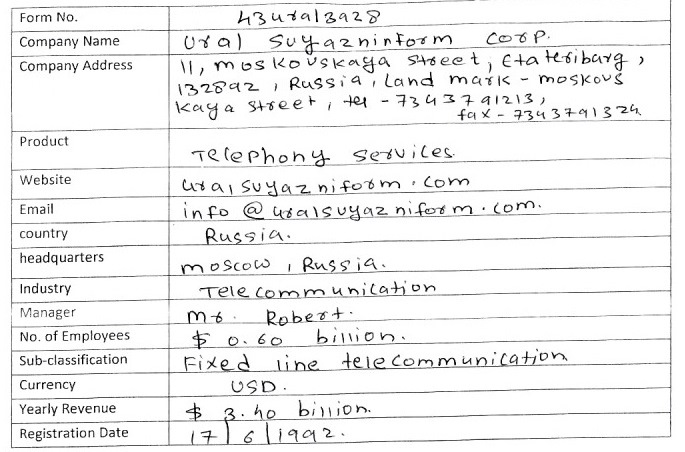 Form No. 43ural3928
Company Name Ural Suyazninform Corp.
Company Address 11, moskovskaya street, Etateribarg,
132892, Russia, Land mark - moskovs
kaya street, tel - 73437 91213,
fax - 7343791324.
Product Telephony services.
Website uralsuyazniform.com
Email info@uralsuyazniform.com.
country Russia.
headquarters moscow, Russia.
Industry Telecommunication
Manager mr. Robert.
No. of Employees $ 0.60 billion.
Sub-classification Fixed line telecommunication
Currency USD.
Yearly Revenue $ 3.40 billion.
Registration Date 17/6/1992.